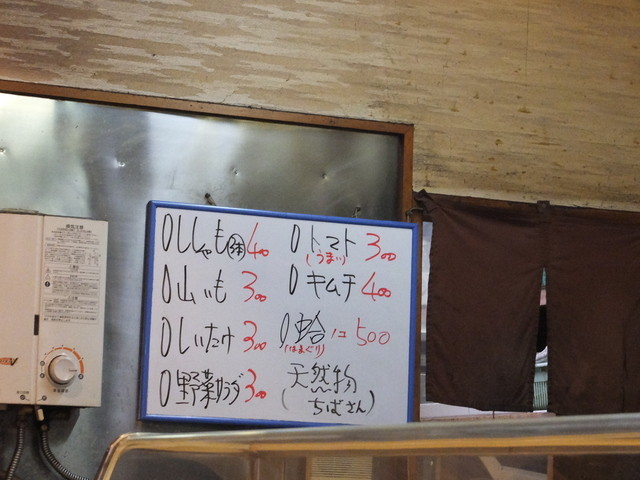 ○ししゃも③本 400
○山いも 300
○しいたけ 300
○野菜サラダ 300
○トマト 300
(うまい)
○キムチ 400
○蛤 1コ 500
(はまぐり)
天然物
(ちばさん)